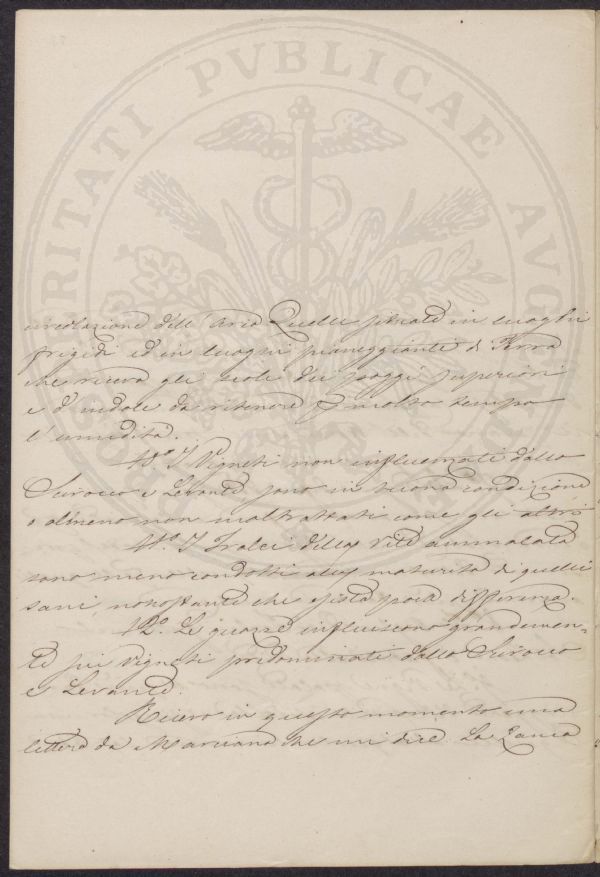 PROSPERITATI PVBLICAE AVGENDAE
circolazione dell'Aria Quelle situate in luoghi
frigidi ed in luoghi pianeggianti di Terra
che riceva gli scoli dei poggi superiori
e d'indole da ritenere p molto tempo
l'umidità.
10.o I Vigneti non influenzati dallo
Scirocco e Levante sono in buona condizione
o almeno non maltrattati come gli altri
11.o I Tralci della Vite ammalata
sono meno condotti alla maturità di quelli
sani, nonostante che esista poca differenza.
12.o Le guazze influiscono grandemen-
te sui Vigneti predominati dallo Scirocco
e Levante.
Ricevo in questo momento una
lettera da Marciana che mi dice La